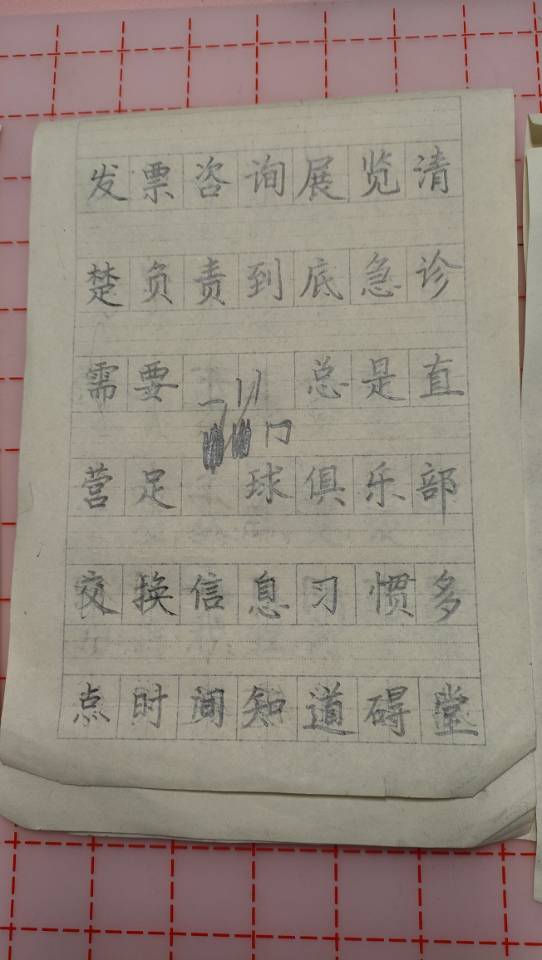 发票咨询展览清
楚负责到底急诊
需要总是直
营足球俱乐部
交换信息习惯多
点时间知道碍堂